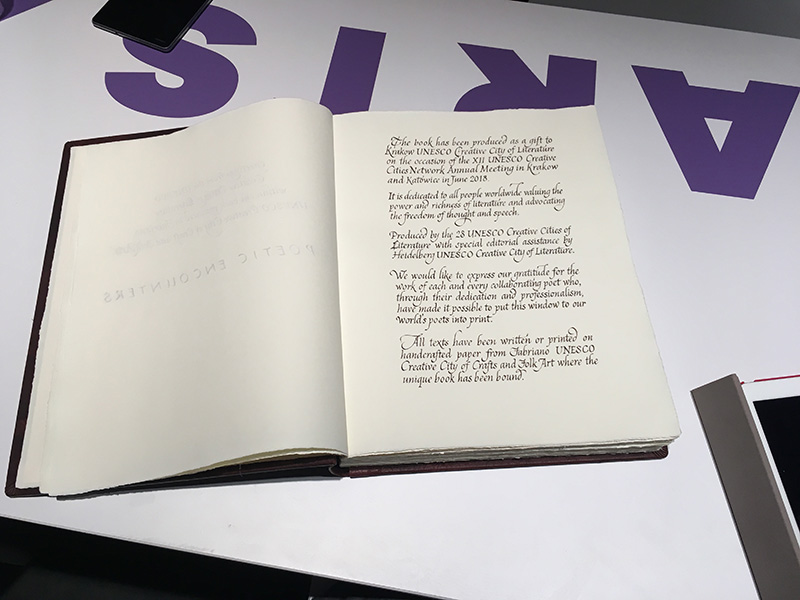 ARIS
POETIC ENCOUNTERS
The book has been produced as a gift to
Krakow UNESCO Creative City of Literature
on the occasion of the XII UNESCO Creative
Cities Network Annual Meeting in Krakow
and Katowice in June 2018.
It is dedicated to all people worldwide valuing the
power and richness of literature and advocating
the freedom of thought and speech.
Produced by the 28 UNESCO Creative Cities of
Literature with special editorial assistance by
Heidelberg UNESCO Creative City of Literature.
We would like to express our gratitude for the
work of each and every collaborating poet who,
through their dedication and professionalism,
have made it possible to put this window to our
world's poets into print.
All texts have been written or printed on
handcrafted paper from Fabriano UNESCO
Creative City of Crafts and Folk Art where the
unique book has been bound.